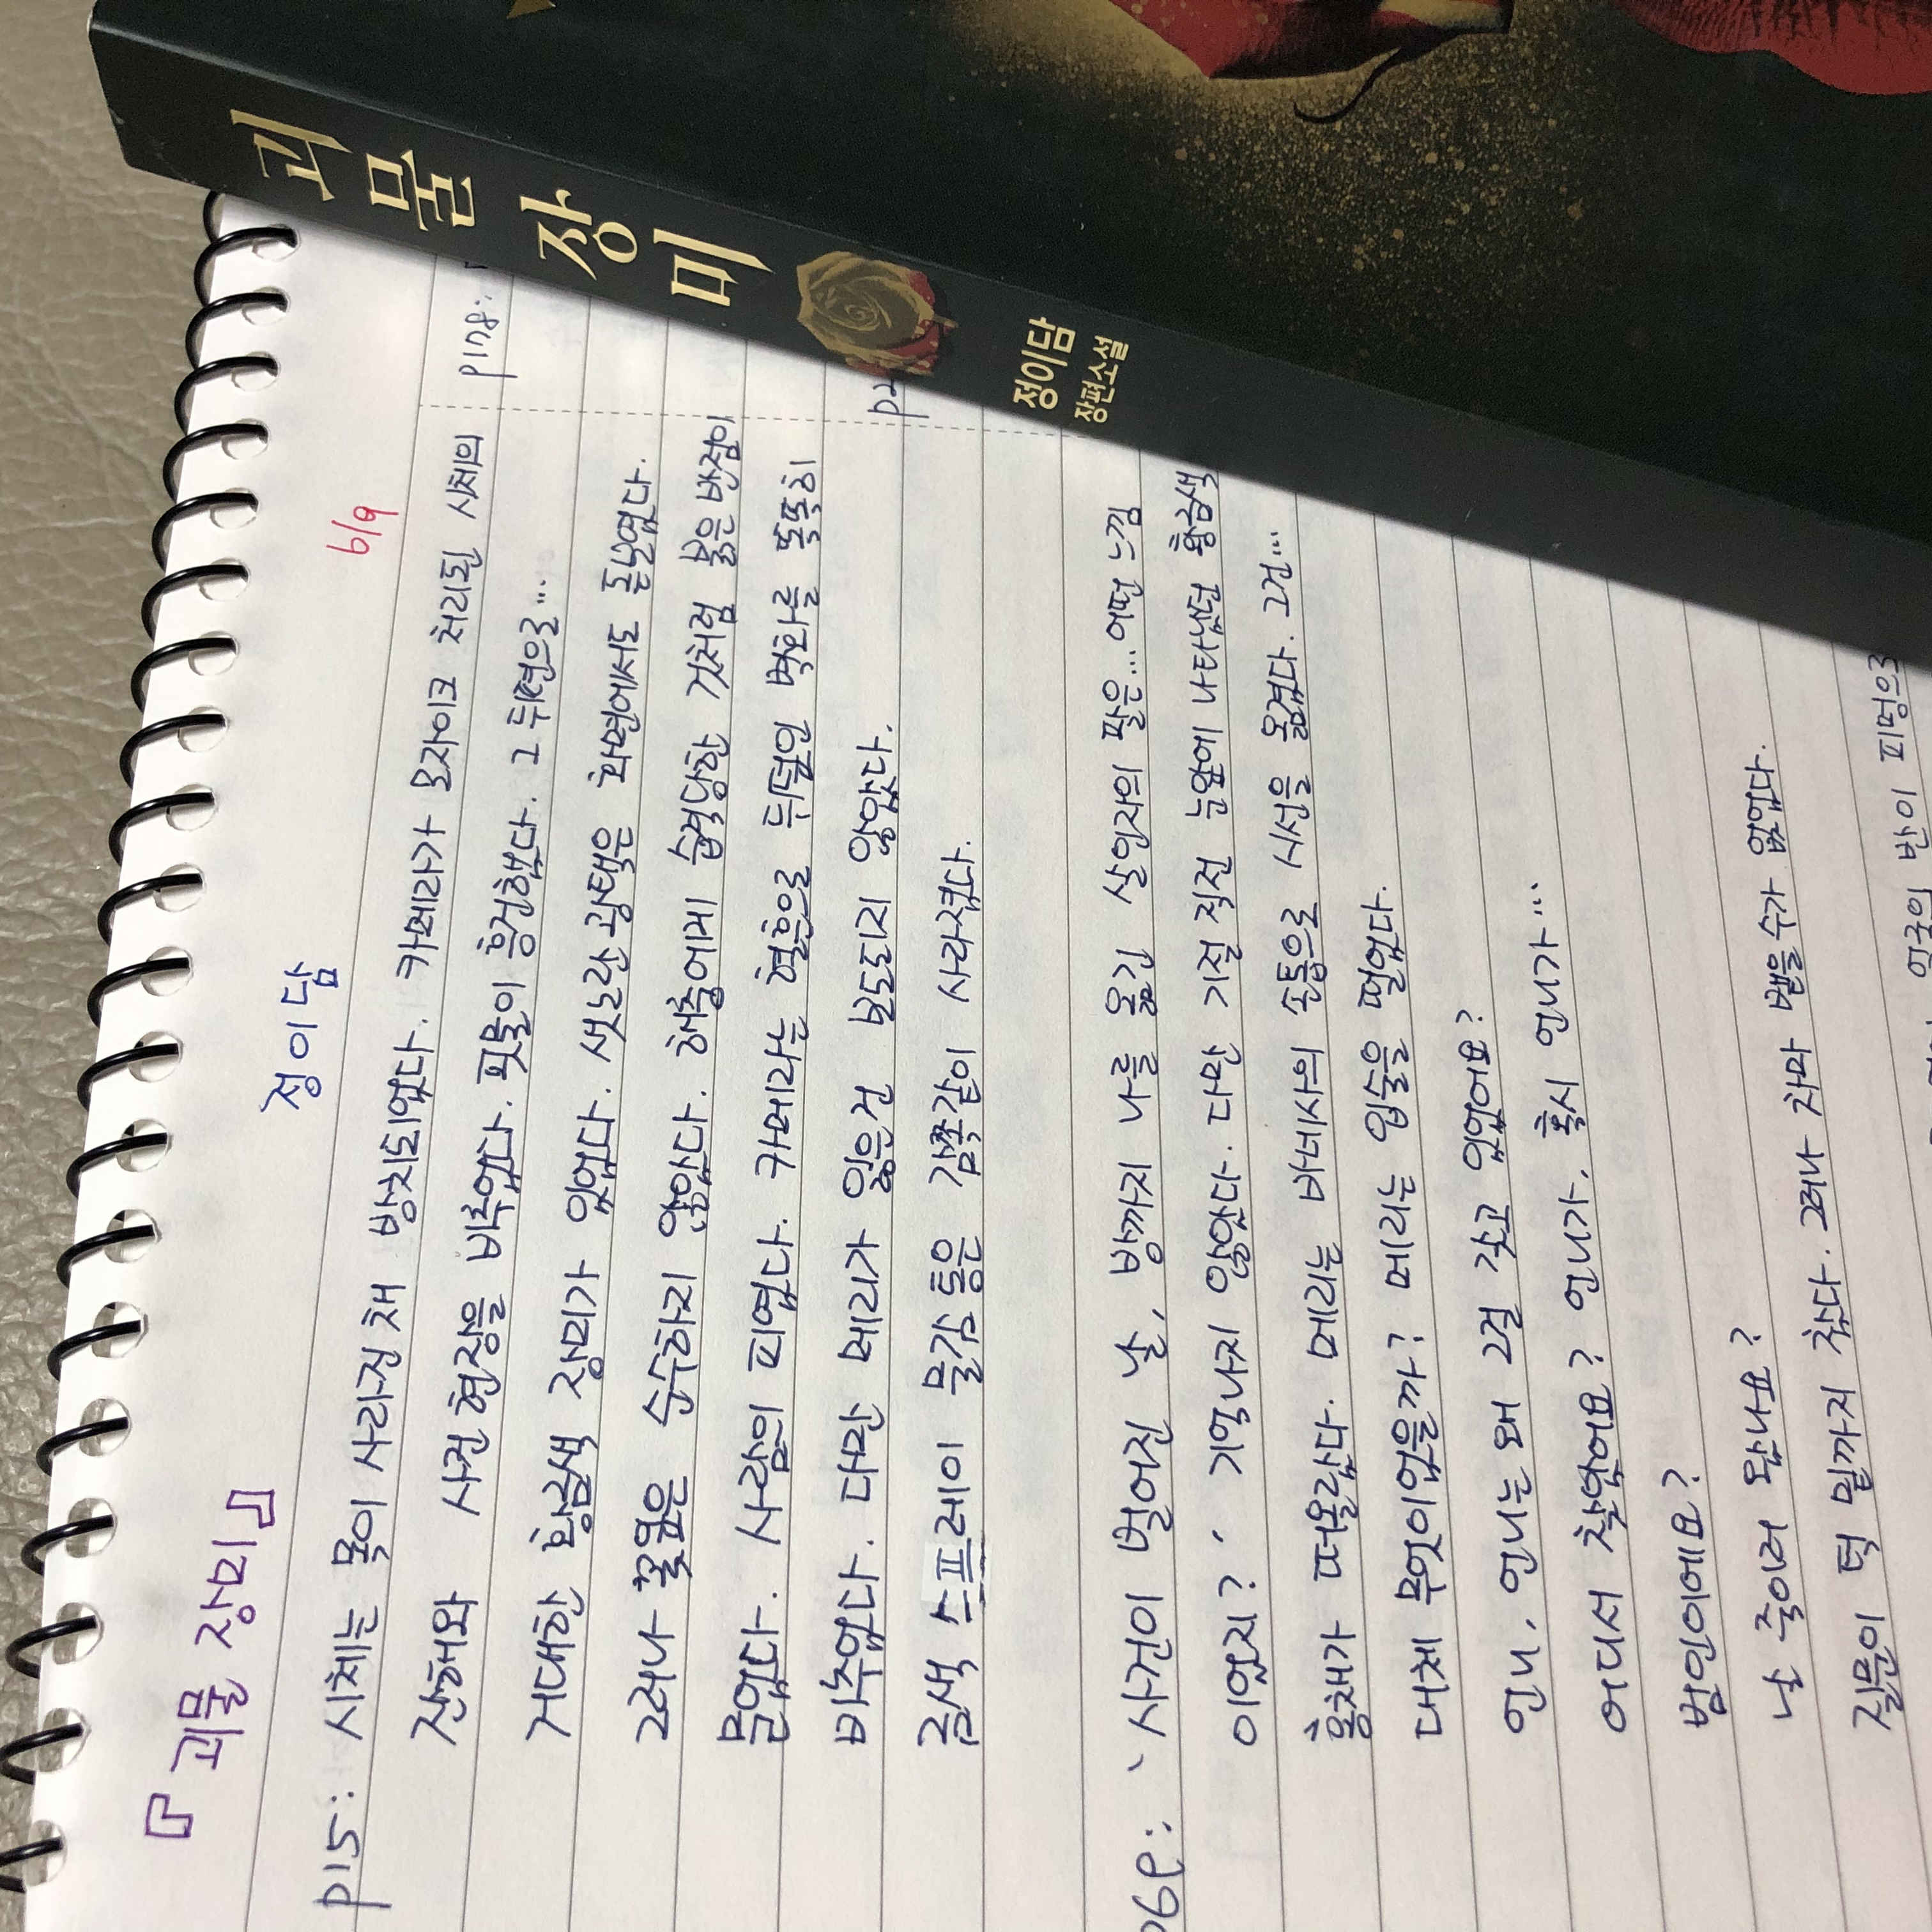 괴물 장미
정이담
장편소설
『괴물 장미』 정이담 6/9
p15: 시체는 목이 사라진 채 방치되었다. 카메라가 모자이크 처리된 시체의
잔해와 사건 현장을 비추었다. 핏물이 흥건했다. 그 뒤편으로...
거대한 황금색 장미가 있었다. 샛노란 광택은 화면에서도 돋보였다.
그러나 꽃잎은 순수하지 않았다. 해충에게 습격당한 것처럼 붉은 반점이
묻었다. 사람의 피였다. 카메라는 혈흔으로 뒤덮인 벽화를 똑똑히
비추었다. 다만 메리가 잃은 건 보도되지 않았다.
금색 스프레이 물감 통은 감쪽같이 사라졌다.
p69: '사건이 벌어진 날, 방까지 나를 옮긴 살인자의 팔은... 어떤 느낌
이었지?' 기억나지 않았다. 다만 기절 직전 눈앞에 나타났던 황금색
홍채가 떠올랐다. 메리는 바네사의 손톱으로 시선을 옮겼다. 그건...
대체 무엇이었을까? 메리는 입술을 떨었다.
언니, 언니는 왜 그걸 갖고 있었어요?
어디서 찾았어요? 언니가, 혹시 언니가...
범인이에요?
날 죽이러 왔나요?
질문이 턱 밑까지 찼다. 그러나 차마 뱉을 수가 없었다.
얼굴의 반이 피멍으로
p178: